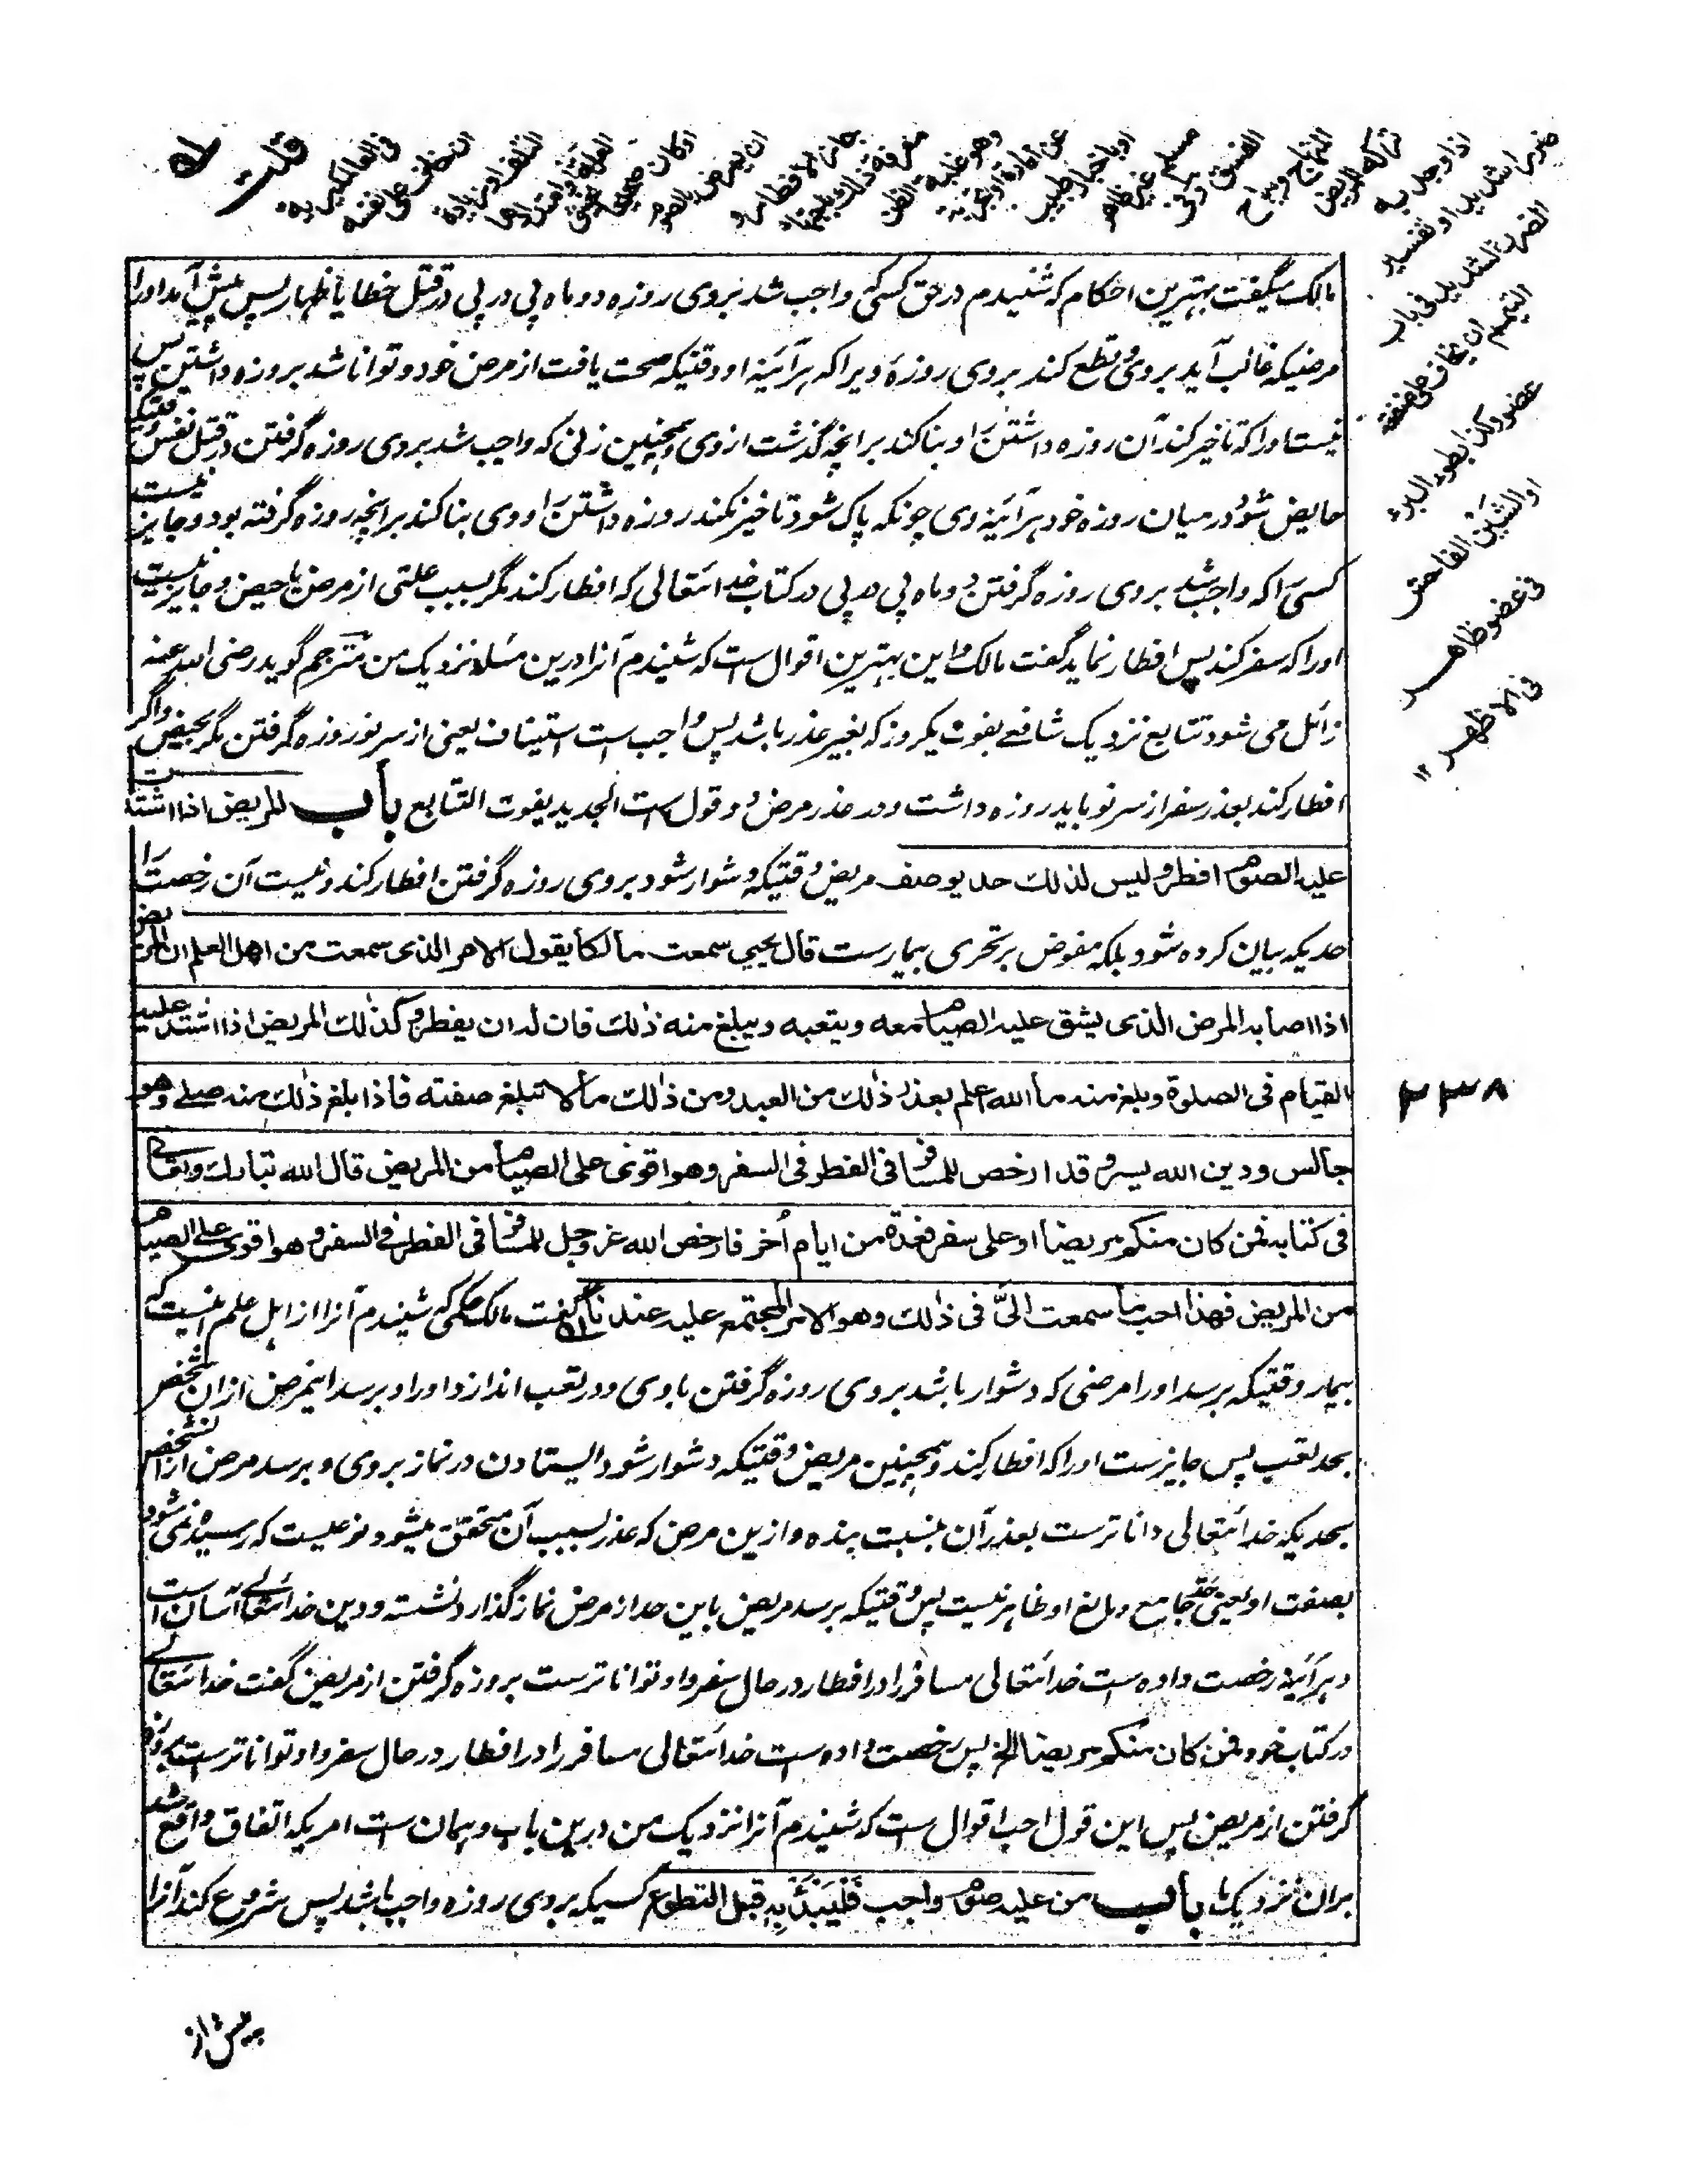 قلت
فی العالمکیریه
ان خاف علی نفسه
التلف او زیادة
العلة و امتدادها
او کان صحیحا یخشی
ان یمرض بالصوم
جاز الافطار و
معرفة ذلك باجتهاد
وهو غلبة الظن
عن امارة او تجربة
او باخبار طبیب
مسلم غیر ظاهر
الفسق وفی
المنهاج ویباح
ترکه للمریض
اذا وجد به
ضررا شدیدا و تفسیر
الضرر الشدید فی باب
التیمم ان یخاف علی منفعة
عضو وکذا بطوء البرء
او الشین الفاحش
فی عضو ظاهر
فی الاظهر ۱۲
مالک میگفت بهترین احکام که شنیدم در حق کسی که واجب شد بروی روزه دو ماه پی در پی در قتل خطا یا ظهار پس پیش آمد اورا
مرضیکه غالب آید بروی و قطع کند بروی روزهٔ ویرا که هرآئینه او وقتیکه صحت یافت از مرض خود و توانا شد بروزه داشتن پس
نیست اورا که تاخیر کند آن روزه داشتن را و بنا کند برانچه گذشت از وی وهمچنین زنی که واجب شد بروی روزه گرفتن در قتل نفس وقتیکه
حایض شود در میان روزه خود هرآئینه وی چونکه پاک شود تاخیر نکند روزه داشتن را و وی بنا کند برانچه روزه گرفته بود و جایز نیست
کسی را که واجب شد بروی روزه گرفتن دو ماه پی در پی در کتاب خدائتعالی که افطار کند مگر بسبب علتی از مرض یا حیض و جایز نیست
اورا که سفر کند پس افطار نماید گفت مالک و این بهترین اقوال ست که شنیدم آنرا درین مسئله نزدیک من مترجم گوید رضی الله عنه
زائل می شود تتابع نزدیک شافعی بفوت یکروز که بغیر عذر باشد پس واجب است استیناف یعنی از سر نو روزه گرفتن مگر بحیض و اگر
افطار کند بعذر سفر از سر نو باید روزه داشت و در عذر مرض دو قول ست الجدید یفوت التتابع باب للمریض اذا اشتد
علیه الصوم افطر و لیس لذلك حد یوصف مریض وقتیکه دشوار شود بروی روزه گرفتن افطار کند و نیست آن رخصت را
حدیکه بیان کرده شود بلکه مفوض بر تحری بیمارست قال یحیی سمعت مالکا یقول الامر الذی سمعت من اهل العلم ان المریض
اذا اصابه المرض الذی یشق علیه الصیام معه ویتعبه ویبلغ منه ذلك فان له ان یفطر وکذلك المریض اذا اشتد علیه
القیام فی الصلوة وبلغ منه ما الله اعلم بعذر ذلك من العبد ومن ذلك ما لا تبلغ صفته فاذا بلغ ذلك منه صلی وهو
جالس ودین الله یسر و قد ارخص للمسافر فی الفطر فی السفر وهو اقوی علی الصیام من المریض قال الله تبارك وتعالی
فی کتابه فمن کان منکم مریضا او علی سفر فعدة من ایام اُخر فارخص الله عز وجل للمسافر فی الفطر فی السفر و هو اقوی علی الصیام
من المریض فهذا احب ما سمعت الیّ فی ذلك وهو الامر المجتمع علیه عندنا گفت مالک حکمی که شنیدم آنرا از اهل علم اینست که
بیمار وقتیکه برسد اورا مرضی که دشوار باشد بروی روزه گرفتن با وی و در تعب اندازد اورا و برسد اینمرض ازان شخص
بحد تعب پس جایزست اورا که افطار کند وهمچنین مریض وقتیکه دشوار شود ایستادن در نماز بروی و برسد مرض ازانشخص
بحدیکه خدائتعالی دانا ترست بعذر آن بنسبت بنده و ازین مرض که عذر بسبب آن متحقق میشود نوعیست که رسیده نمی شود
بصفت او یعنی حد جامع و مانع او ظاهر نیست پس وقتیکه برسد مریض باین حد از مرض نماز گذارد نشسته و دین خدائتعالی آسان است
و هرآئینه رخصت داده ست خدائتعالی مسافر را در افطار در حال سفر و او توانا ترست بروزه گرفتن از مریض گفت خدائتعالی
در کتاب خود فمن کان منکم مریضا الخ پس رخصت داده ست خدائتعالی مسافر را در افطار در حال سفر و او توانا ترست بروزه
گرفتن از مریض پس این قول احب اقوال ست که شنیدم آنرا نزدیک من درین باب و همان ست امریکه اتفاق واقع شد
بران نزدیک ما باب من علیه صوم واجب فَلْیَبْدَأْ بِهِ قبل التطوع کسیکه بروی روزه واجب باشد پس شروع کند آنرا
۲۳۸
پیش از